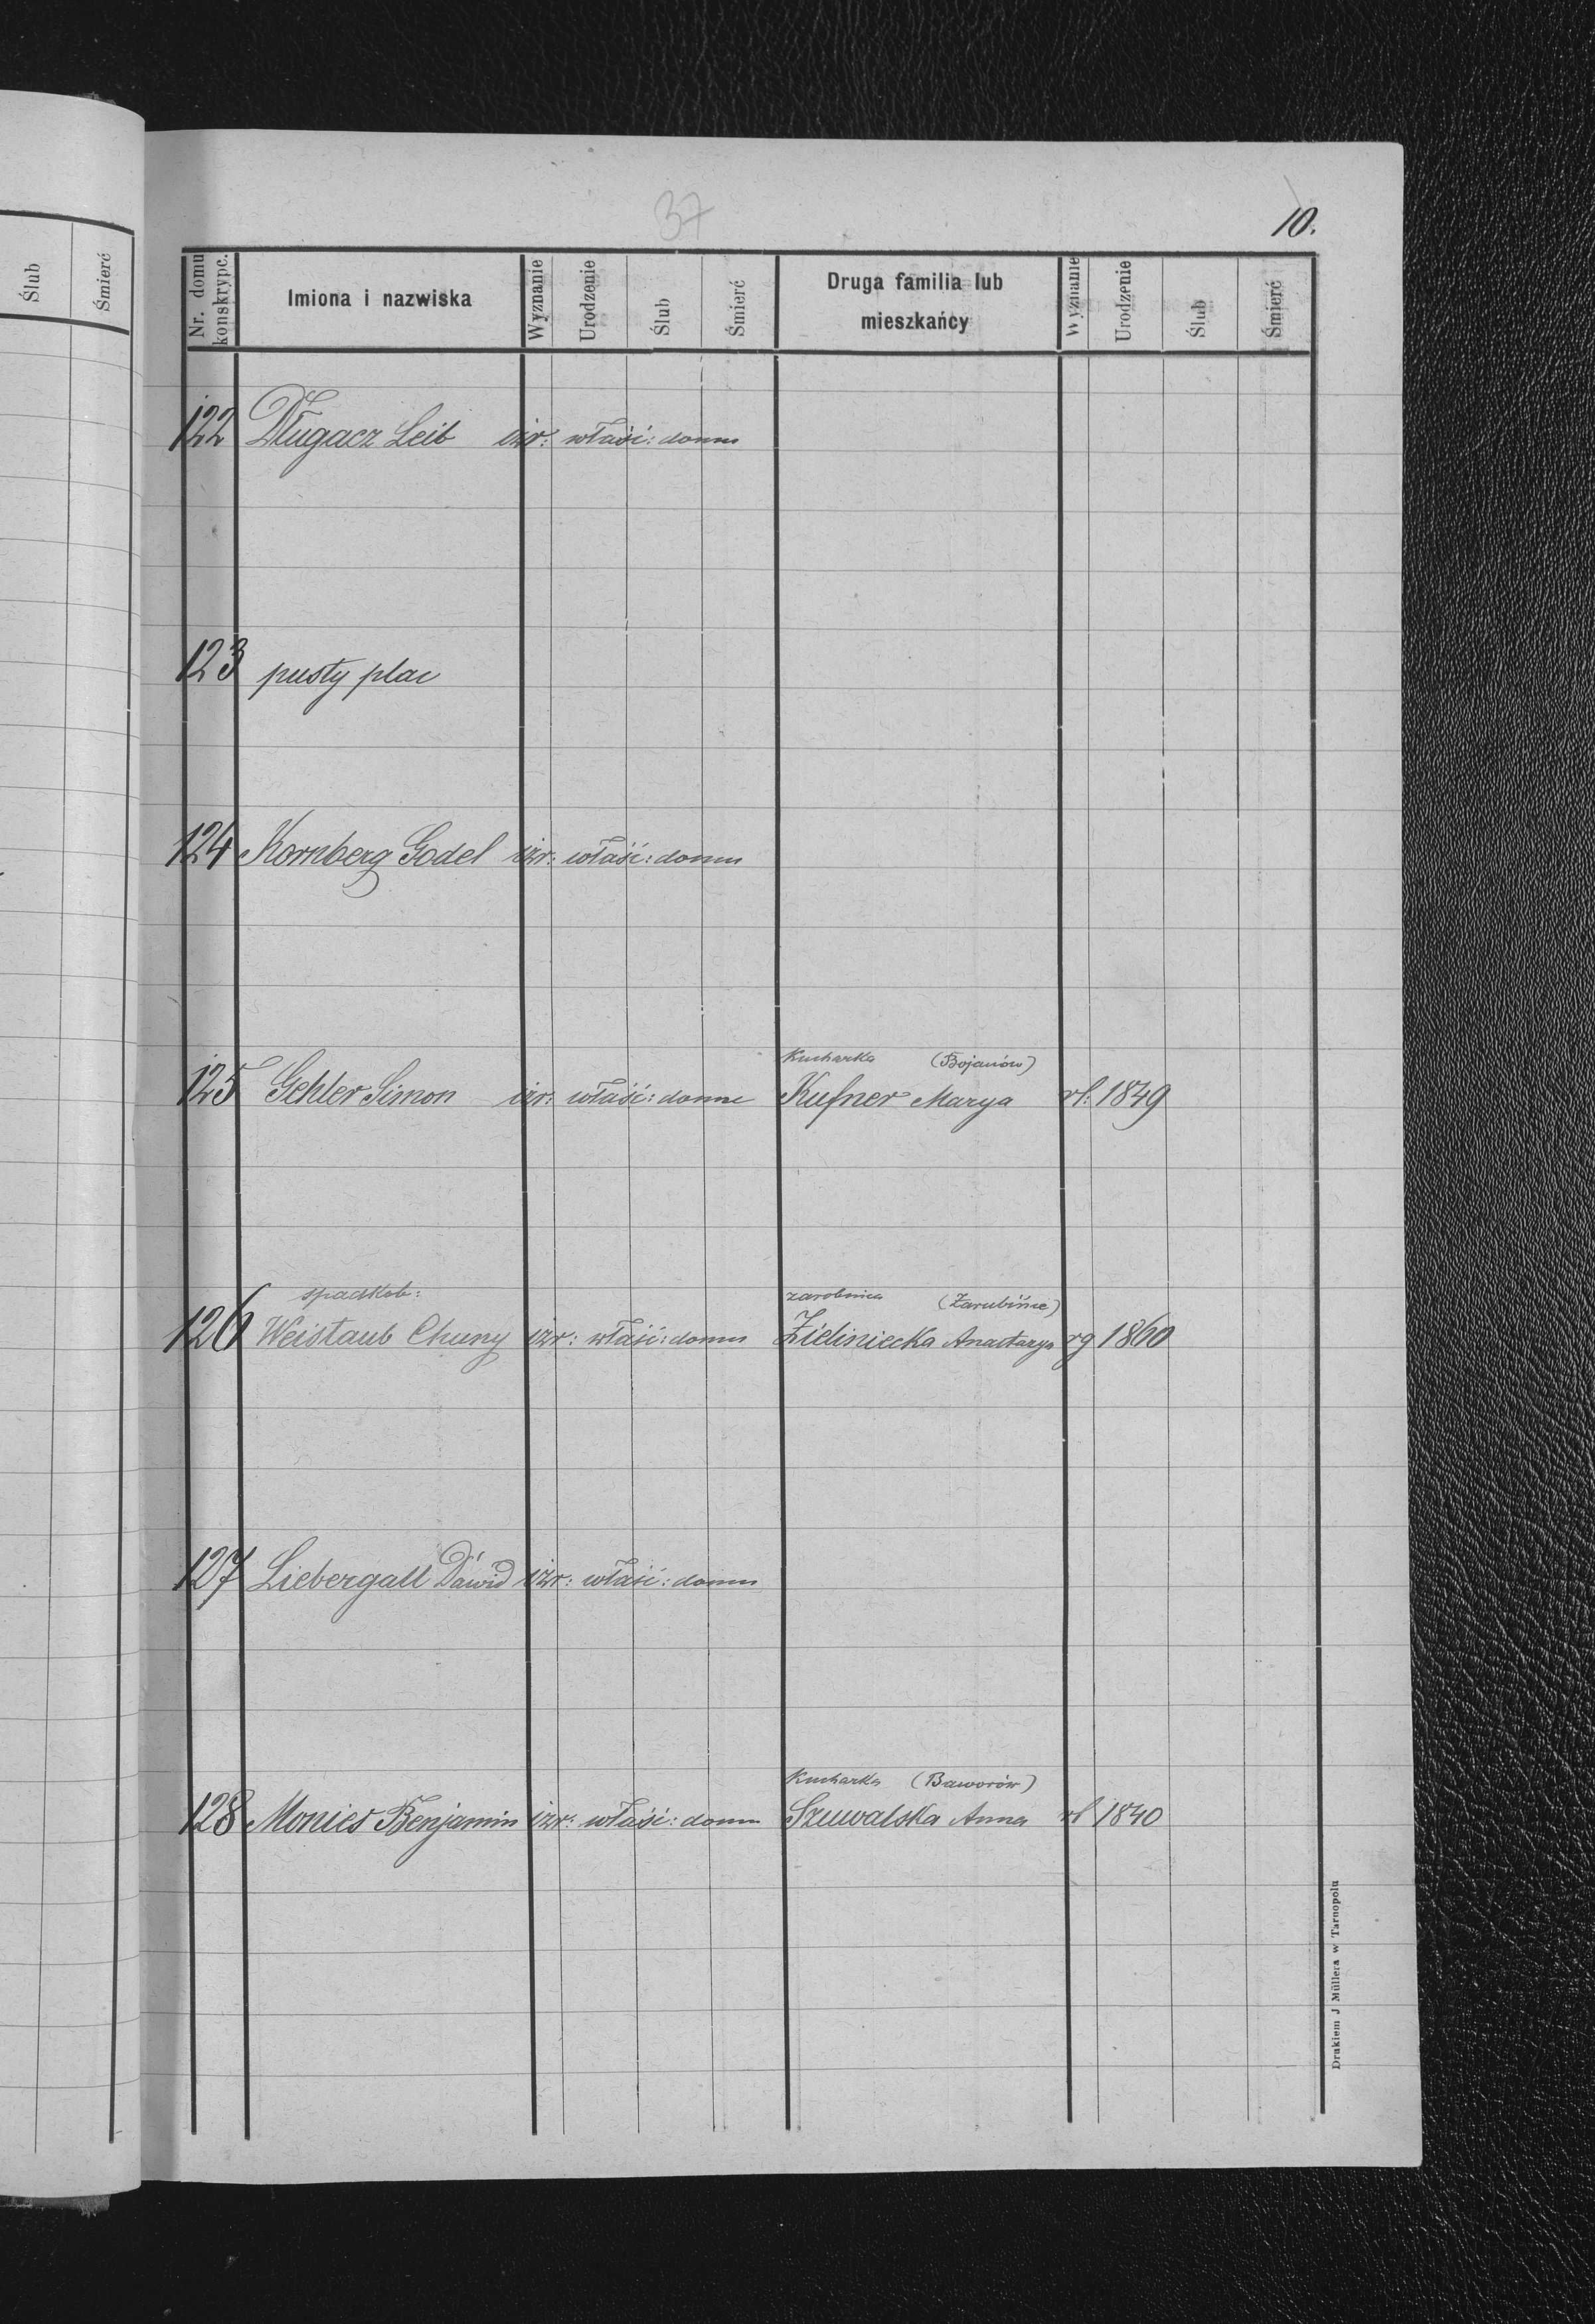 Ślub
Śmierć
37
10.
Nr. domu konskrypc.
Imiona i nazwiska
Wyznanie
Urodzenie
Ślub
Śmierć
Druga familia lub
mieszkańcy
Wyznanie
Urodzenie
Ślub
Śmierć
122 Długacz Leib izr: właść: domu
123 pusty plac
124 Kornberg Godel izr: właść: domu
Kucharka (Bojanów)
125 Gehler Simon izr: właść: domu Kufner Marya rł: 1849
spadkob: zarobnica (Zarubińce)
126 Weistaub Chuny izr: właść: domu Zieliniecka Anastazya rg 1860
127 Liebergall Dawid izr: właść: domu
Kucharka (Baworów)
128 Monies Benjamin izr: właść: domu Szuwalska Anna rł 1840
Drukiem J Müllera w Tarnopolu